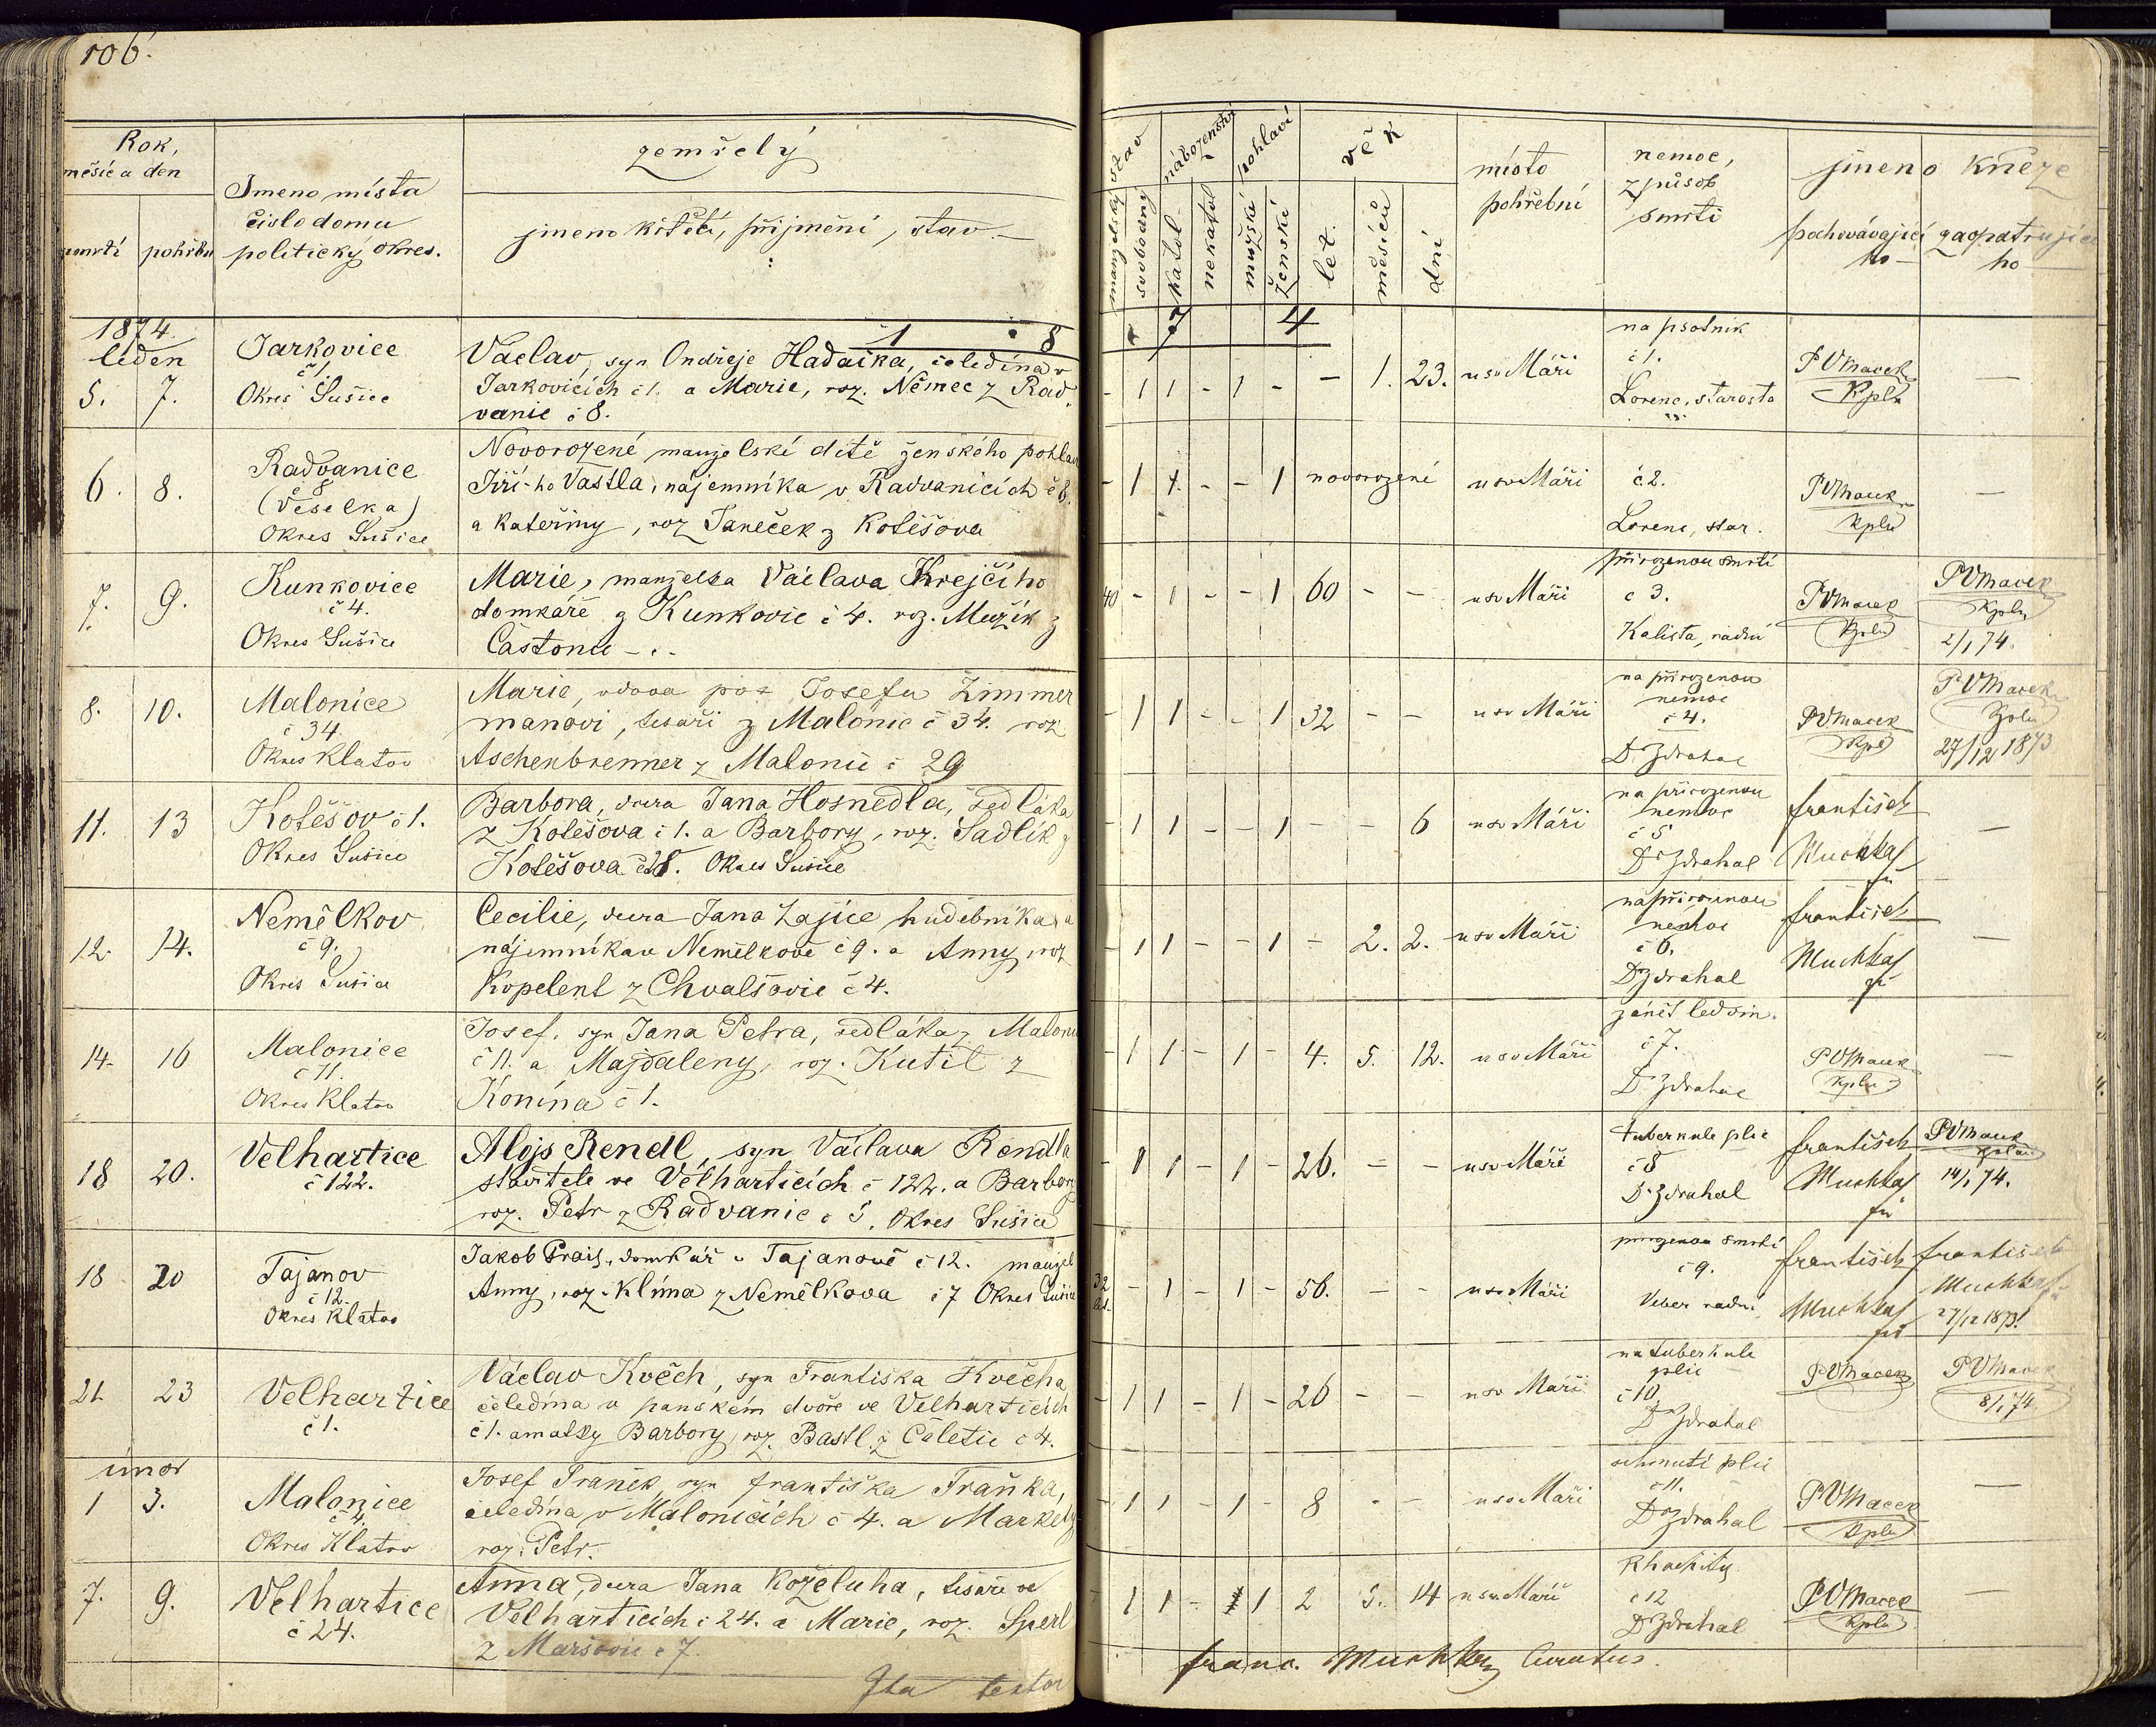 106.
Rok,
měsíc a den
úmrtí
pohřbu
Jmeno místa
číslo domu
politický okres.
zemřelý
jmeno křestí, přijmení, stav
stav
manželský
svobodný
náboženství
katol.
nekatol
pohlaví
mužské
ženské
věk
let.
měsíců
dní
místo
pohřební
nemoc,
způsob
smrti
jmeno kněze
pochovávajícího
zaopatrujícího
1874.
leden
5. 7.
Jarkovice
č 1.
Okres Sušice
Václav, syn Ondřeje Hadačka, čeledína v
Jarkovicích č 1. a Marie, roz. Němec z Rad
vanic č 8.
- 1 1 - 1 - - 1. 23. u sv Máří
na psotník
č 1.
Lorenc, starosta
PVMacek
Kpln
—
6. 8.
Radvanice
č 8
(Veselka)
Okres Sušice
Novorozené manželské dítě ženského pohlaví
Jiří-ho Vastla, nájemníka v Radvanicích č 8.
a Kateřiny, roz Janeček z Kotěšova
- 1 1. - - 1 novorozené u sv Máří
č 2.
Lorenc, star.
PVMacek
Kpln
—
7. 9.
Kunkovice
č 4.
Okres Sušice
Marie, manželka Václava Krejčího
domkáře z Kunkovic č 4. roz. Mužík z
Částonic
40 - 1 - - 1 60 - - u sv Máří
přirozenou smrtí
č 3.
Kalista, radní
PVMacek
Kpln
PVMacek
Kpln
2/1 74.
8. 10.
Malonice
č 34.
Okres Klatov
Marie, vdova po Josefu Zimmer
manovi, tesaři z Malonic č 34. roz
Aschenbrenner z Malonic č 29
- 1 1 - - 1 32 - - u sv Máří
na přirozenou
nemoc
č 4.
Dr Zdrahal
PVMacek
Kpln
PVMacek
Kpln
27/12 1873
11. 13
Kotěšov č 1.
Okres Sušice
Barbora, dcera Jana Hosnedla, sedláka
z Kotěšova č 1. a Barbory, roz. Sadlík z
Kotěšova č 28. Okres Sušice
- 1 1 - - 1 - - 6 u sv Máří
na přirozenou
nemoc
č 5
Dr Zdrahal
František
Muchka
—
12. 14.
Nemělkov
č 9.
Okres Sušice
Cecilie, dcera Jana Zajíce hudebníka a
nájemníka v Nemělkově č 9. a Anny, roz
Kopelent z Chvalšovic č 4.
- 1 1 - - 1 - 2. 2. u sv Máří
na přirozenou
nemoc
č 6.
Dr Zdrahal
František
Muchka
—
14. 16
Malonice
č 11.
Okres Klatov
Josef, syn Jana Petra, sedláka z Malonic
č 11. a Majdaleny, roz. Kutil z
Konína č 1.
- 1 1 - 1 - 4. 5. 12. u sv Máří
zánět ledvin.
č 7.
Dr Zdrahal
PVMacek
Kpln
—
18 20.
Velhartice
č 122.
Alojs Rendl, syn Václava Rendla
stavitele ve Velharticích č 122. a Barbory
roz. Petr z Radvanic č 5. Okres Sušice
- 1 1 - 1 - 26. - - u sv Máří
tuberkule plic
č 8
Dr Zdrahal
František
Muchka
PVMacek
Kplan
14/1 74.
18 20
Tajanov
č 12.
Okres Klatov
Jakob Prais, domkář v Tajanově č 12. manžel
Anny, roz. Klíma z Nemělkova č 7 Okres Sušice
32
let. - 1 - 1 - 56. - - u sv Máří
přirozenou smrtí
č 9.
Veber radní
František
Muchka
František
Muchka
27/12 1873.
21. 23
Velhartice
č 1.
Václav Kvěch, syn Františka Kvěcha
čeledína v panském dvoře ve Velharticích
č 1. a matky Barbory, roz. Bastl z Čeletic č 4.
- 1 1 - 1 - 26 - - u sv Máří
na tuberkule
plic
č 10.
Dr Zdrahal
PVMacek
PVMacek
8/1 74
únor
1 3.
Malonice
č 4.
Okres Klatov
Josef Franěk, syn Františka Fraňka,
čeledína v Malonicích č 4. a Markety
roz. Petr.
- 1 1 - 1 - 8 - - u sv Máří
ochrnutí plic
č 11.
Dr Zdrahal
PVMacek
Kpln
—
7. 9.
Velhartice
č 24.
Anna, dcera Jana Koželuha, tesaře ve
Velharticích č 24. a Marie, roz. Sperl
z Maršovic č 7.
- 1 1 - 1 2 5. 14 u sv Máří
Rhachitis
č 12
Dr Zdrahal
PVMacek
Kpln
—
Ita testor
Franc. Muchka Curatus.